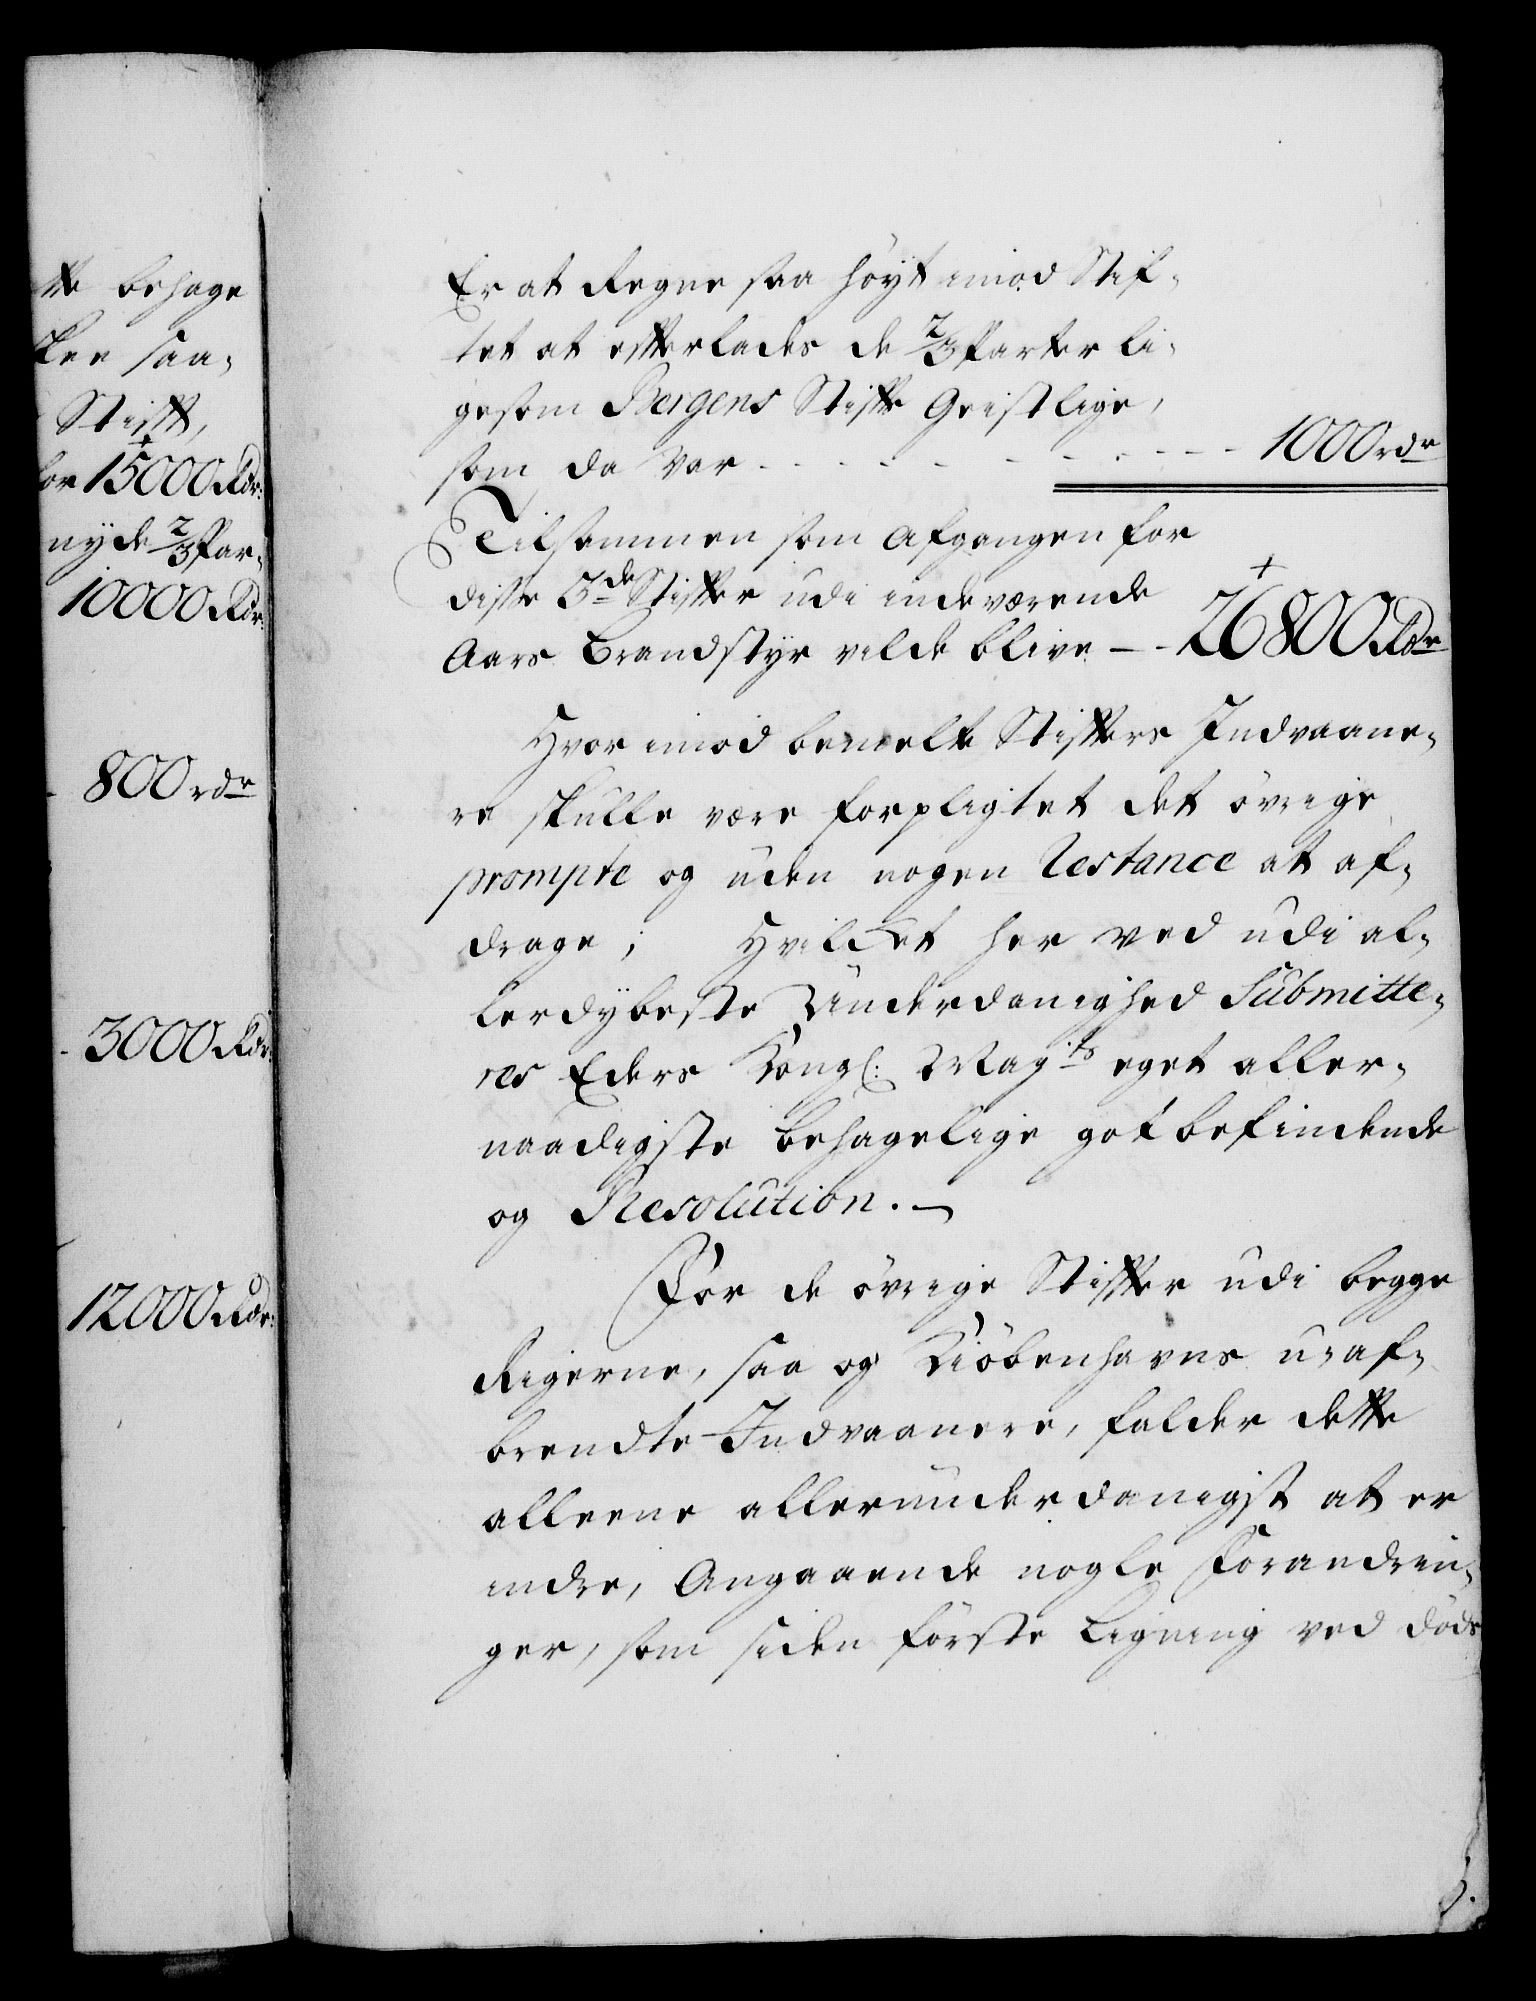 tte behage
skee saa-
Stift,
for 15000 Rdr:
nyde 2/3 Par-
10000 Rdr:
800 rdr
3000 Rdr:
12000 Rdr:
Er at Regne saa høyt imod Stif-
tet at efterlades de 2/3 Parter li-
gesom Bergens Stifts Geistlige,
som da var - - - - - - - - 1000 rdr
Tilsammen som Afgangen for
disse 3de Stifter udi indeværende
Aars Brandstyr vilde blive — - 26800 Rdr
Hvor imod bemelte Stifters Indvaane-
re skulle være forpligtet det øvrige
prompte og uden nogen Restance at af-
drage; Hvilcket her ved udi al-
lerdybeste Underdanighed Submitte-
res Eders Kongl: Mayts eget aller-
naadigste behagelige gotbefindende
og Resolution. —
For de øvrige Stifter udi begge
Rigerne, saa og Kiøbenhavns u-af-
brendte Indvaanere, falder dette
alleene allerunderdanigst at er
indre, Angaaende nogle Forandrin-
ger, som siden første Ligning ved døds